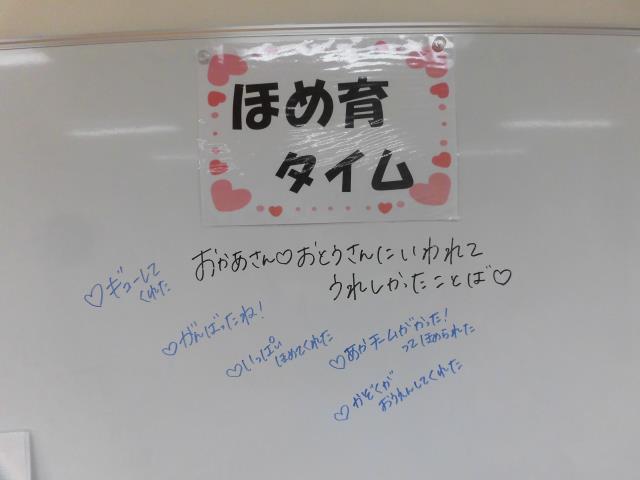 ほめ育
タイム
おかあさん♡おとうさんにいわれて
うれしかったことば♡
♡ギューして
くれた
♡がんばったね!
♡いっぱい
ほめてくれた
♡あかチームがかった!
ってほめられた
♡かぞくが
おうえんしてくれた